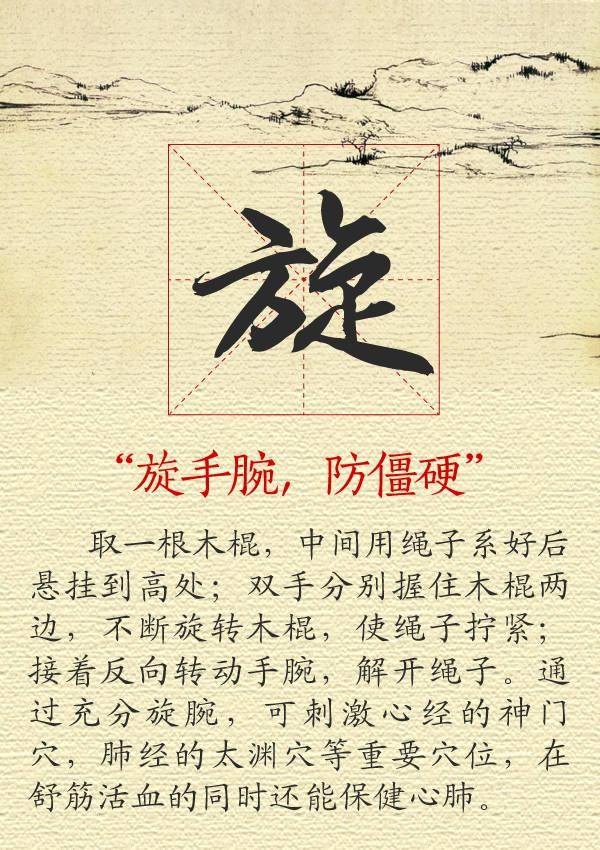 旋
“旋手腕，防僵硬”
取一根木棍，中间用绳子系好后
悬挂到高处；双手分别握住木棍两
边，不断旋转木棍，使绳子拧紧；
接着反向转动手腕，解开绳子。通
过充分旋腕，可刺激心经的神门
穴，肺经的太渊穴等重要穴位，在
舒筋活血的同时还能保健心肺。